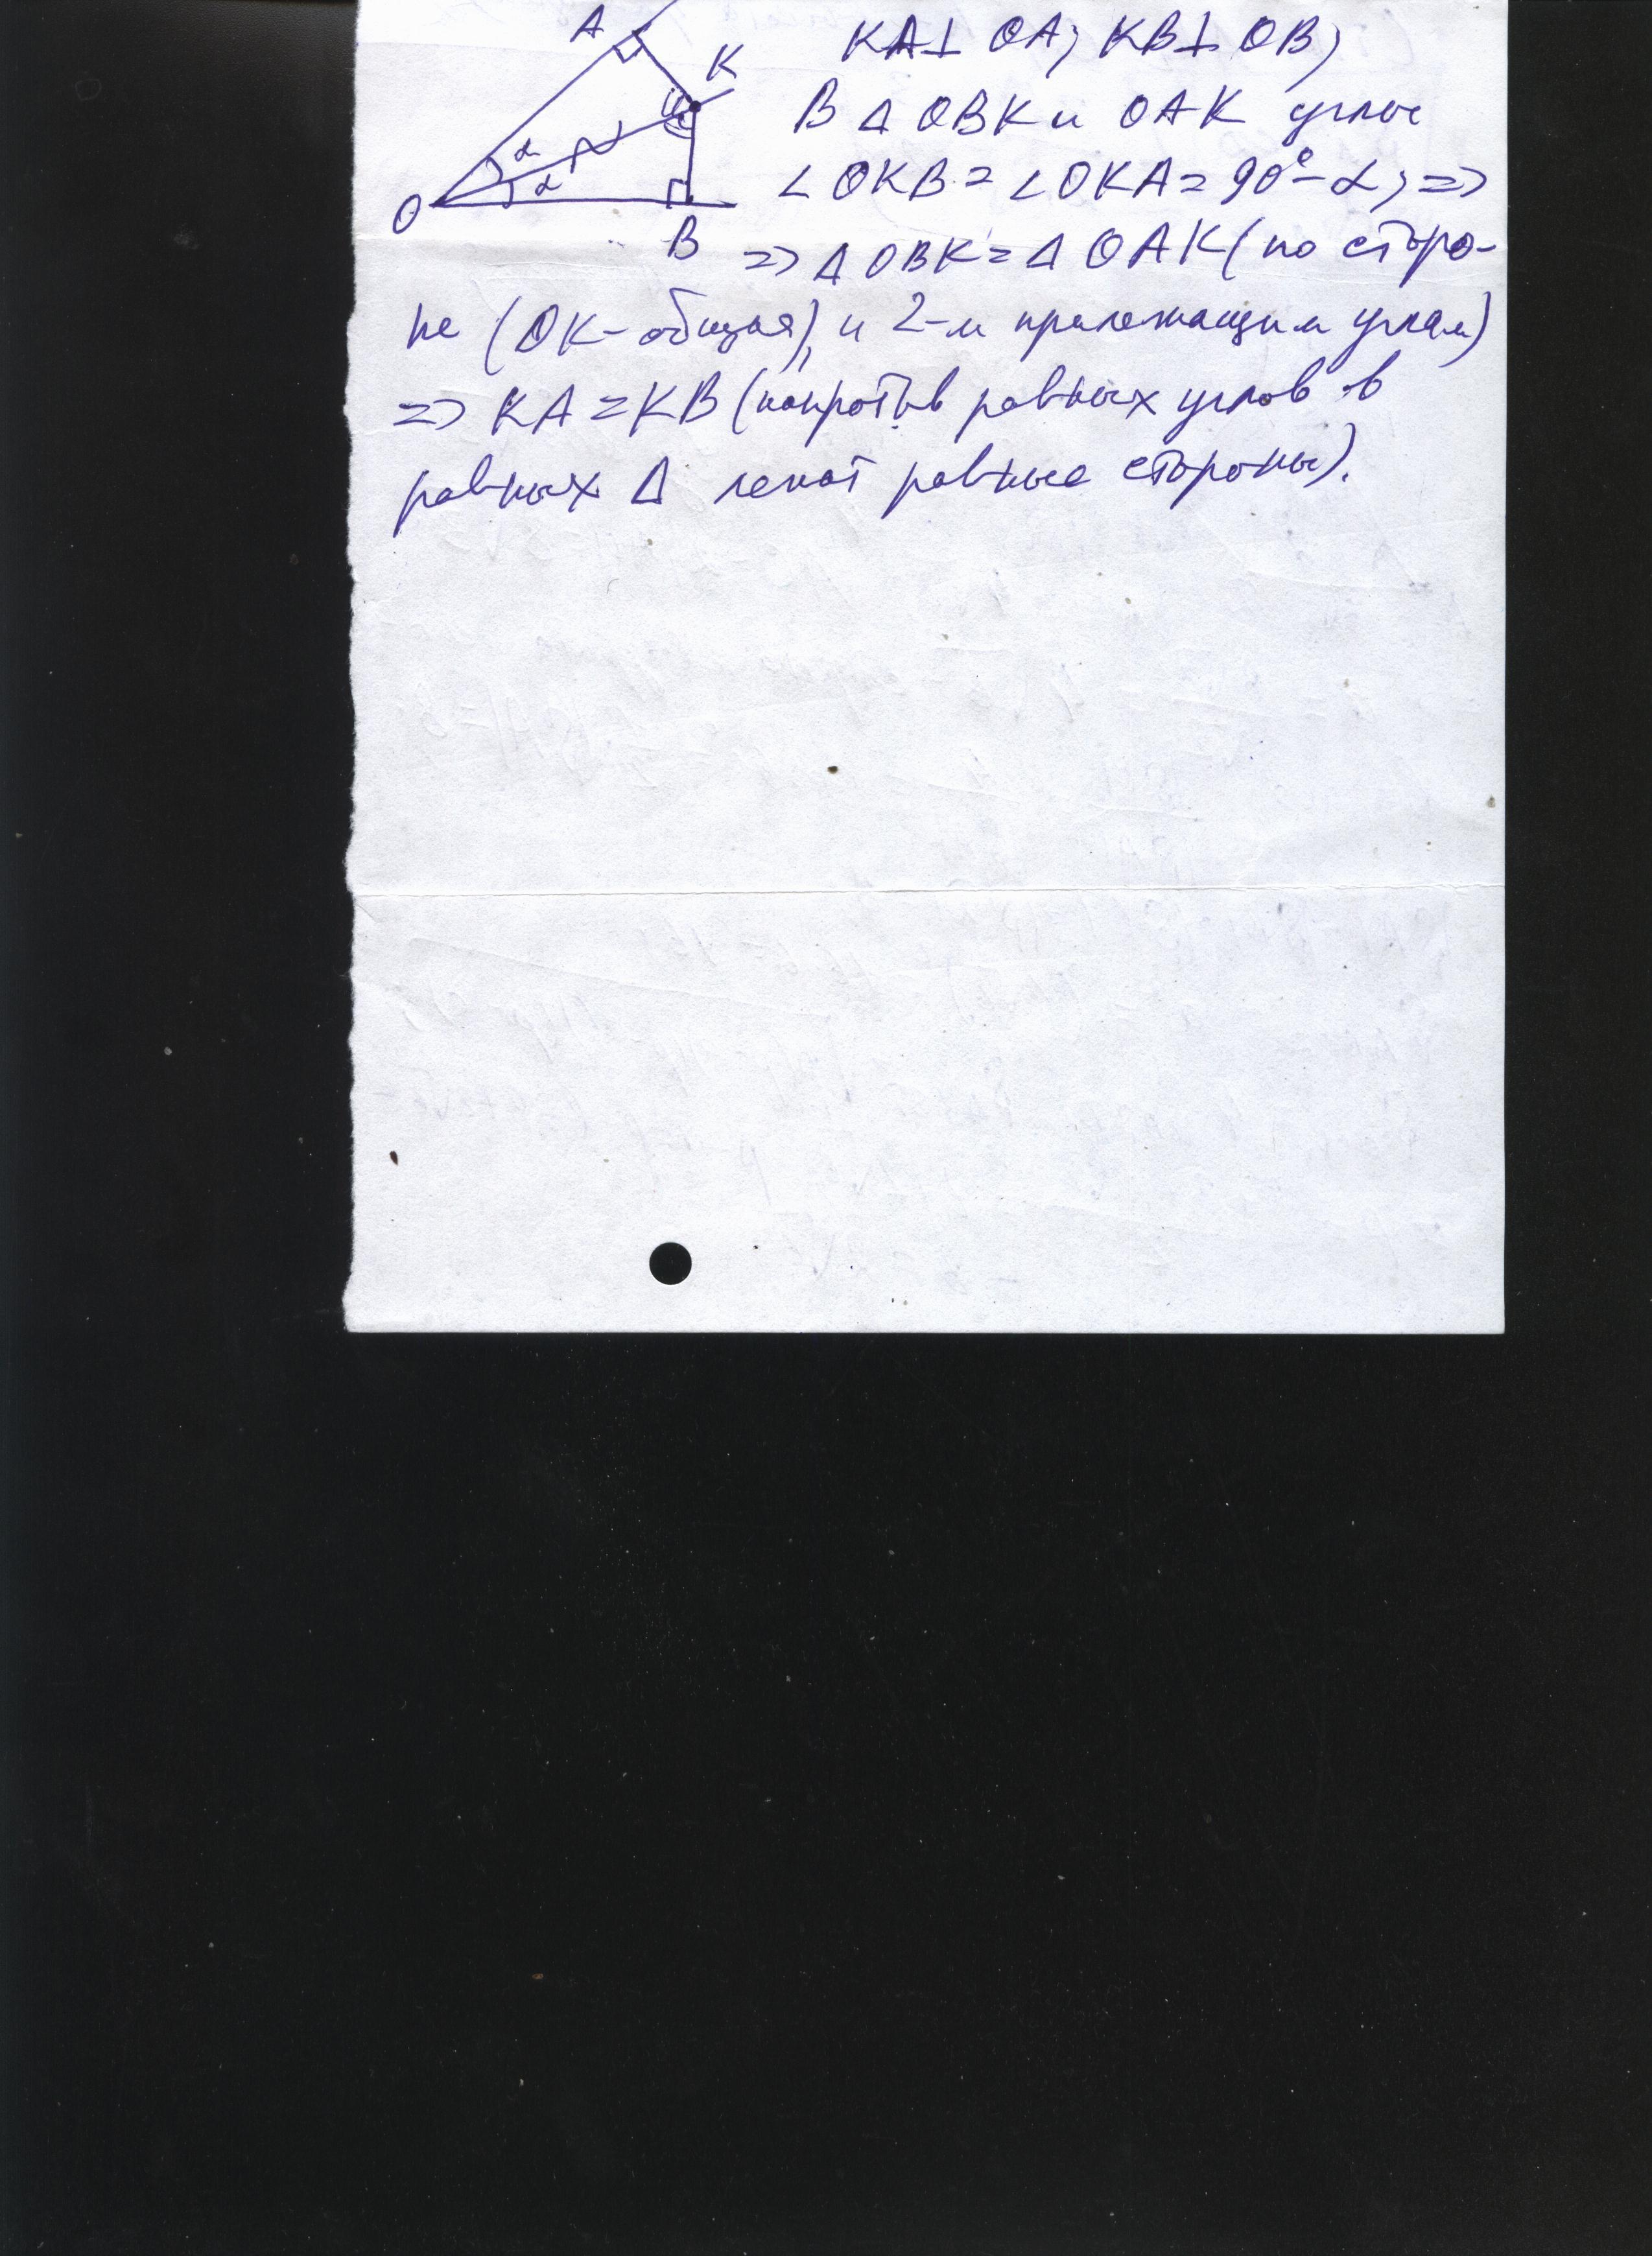 A
K
α
α
O
B
KA⊥OA; KB⊥OB;
В Δ OBK и OAK углы
∠OKB = ∠OKA = 90° - α; =>
=> Δ OBK = Δ OAK (по сторо-
не (OK - общая), и 2-м прилежащим углам)
=> KA = KB (напротив равных углов в
равных Δ лежат равные стороны).